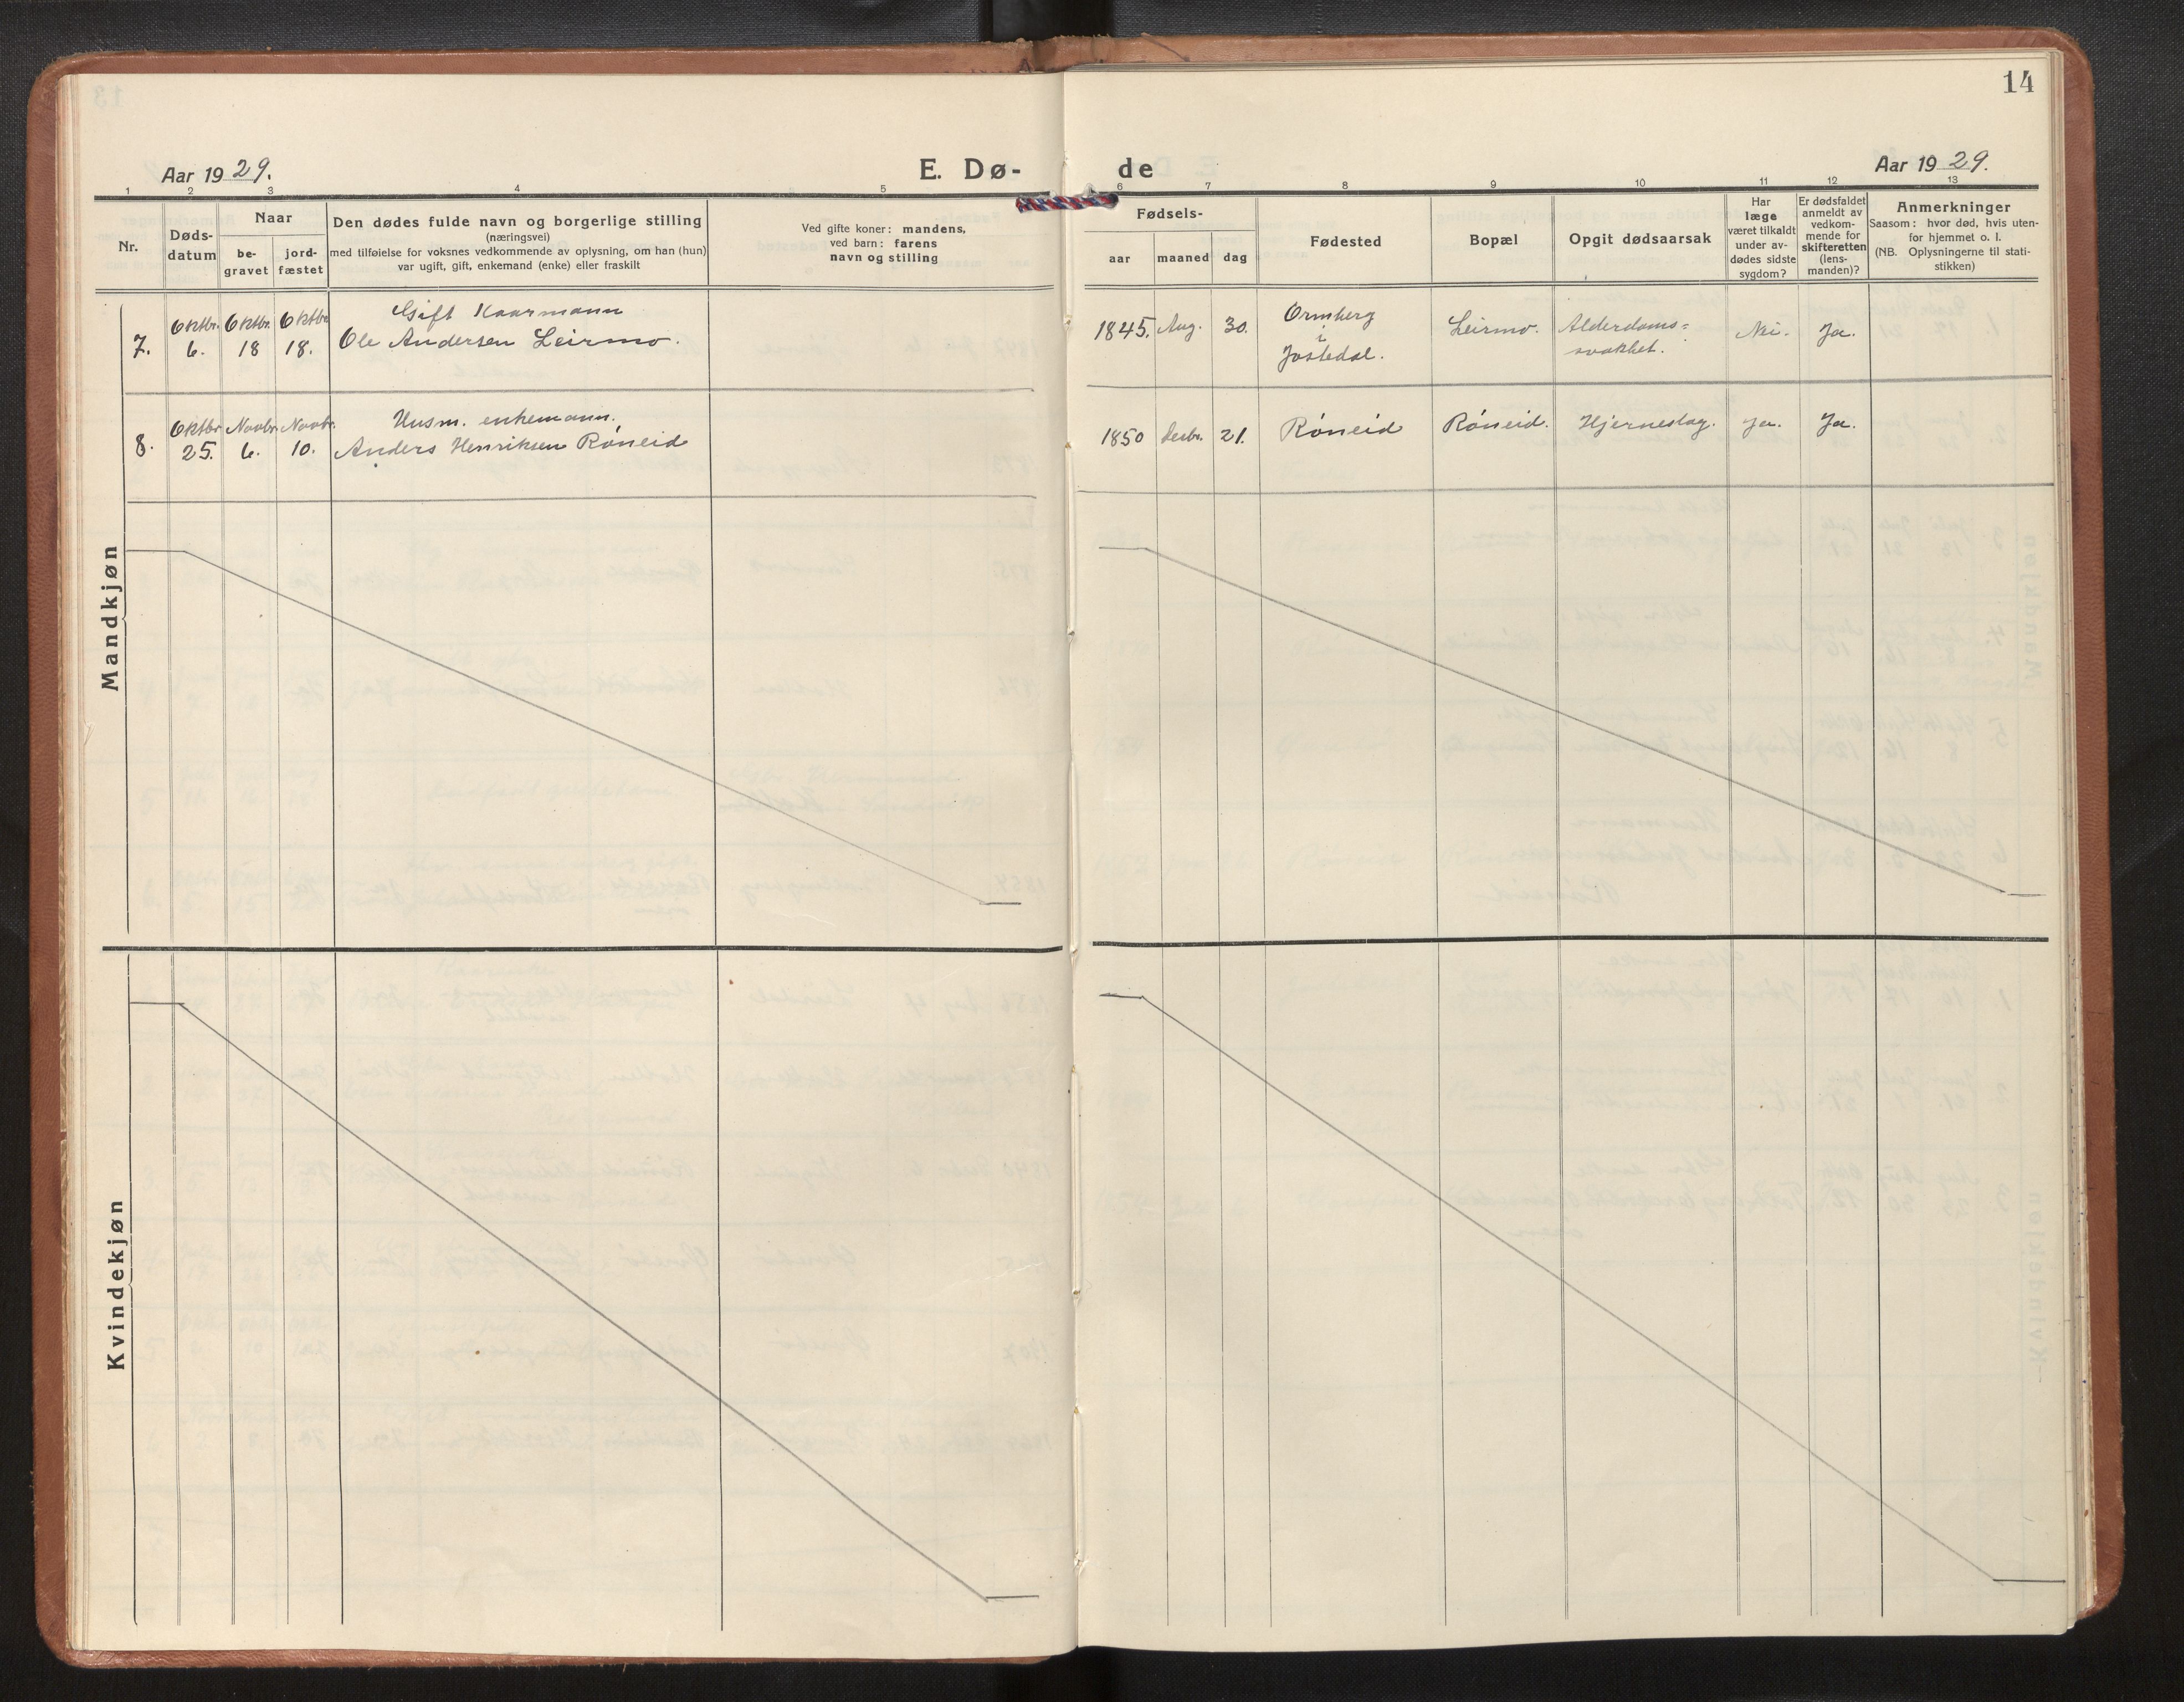 14
Aar 1929.
E. Dø-
de
Aar 1929.
1 2 3 4 5 6 7 8 9 10 11 12 13
Nr.
Døds-
datum
Naar
be-
gravet
jord-
fæstet
Den dødes fulde navn og borgerlige stilling
(næringsvei)
med tilføielse for voksnes vedkommende av oplysning, om han (hun)
var ugift, gift, enkemand (enke) eller fraskilt
Ved gifte koner: mandens,
ved barn: farens
navn og stilling
Fødsels-
aar
maaned
dag
Fødested
Bopæl
Opgit dødsaarsak
Har
læge
været tilkaldt
under av-
dødes sidste
sygdom?
Er dødsfaldet
anmeldt av
vedkom-
mende for
skifteretten
(lens-
manden)?
Anmerkninger
Saasom: hvor død, hvis uten-
for hjemmet o. l.
(NB. Oplysningerne til stati-
stikken)
Mandkjøn
7.
Oktbr.
6.
Oktbr.
18
Oktbr.
18.
Gift Kaarmann
Ole Andersen Leirmo.
1845.
Aug.
30.
Ormberg
i
Jostedal.
Leirmo.
Alderdoms=
svakhet.
Nei.
Ja.
8.
Oktbr.
25.
Novbr.
6.
Novbr.
10.
Husm. enkemann.
Anders Henriksen Røneid
1850
Desbr.
21.
Røneid
Røneid.
Hjerneslag.
Ja.
Ja.
Kvindekjøn